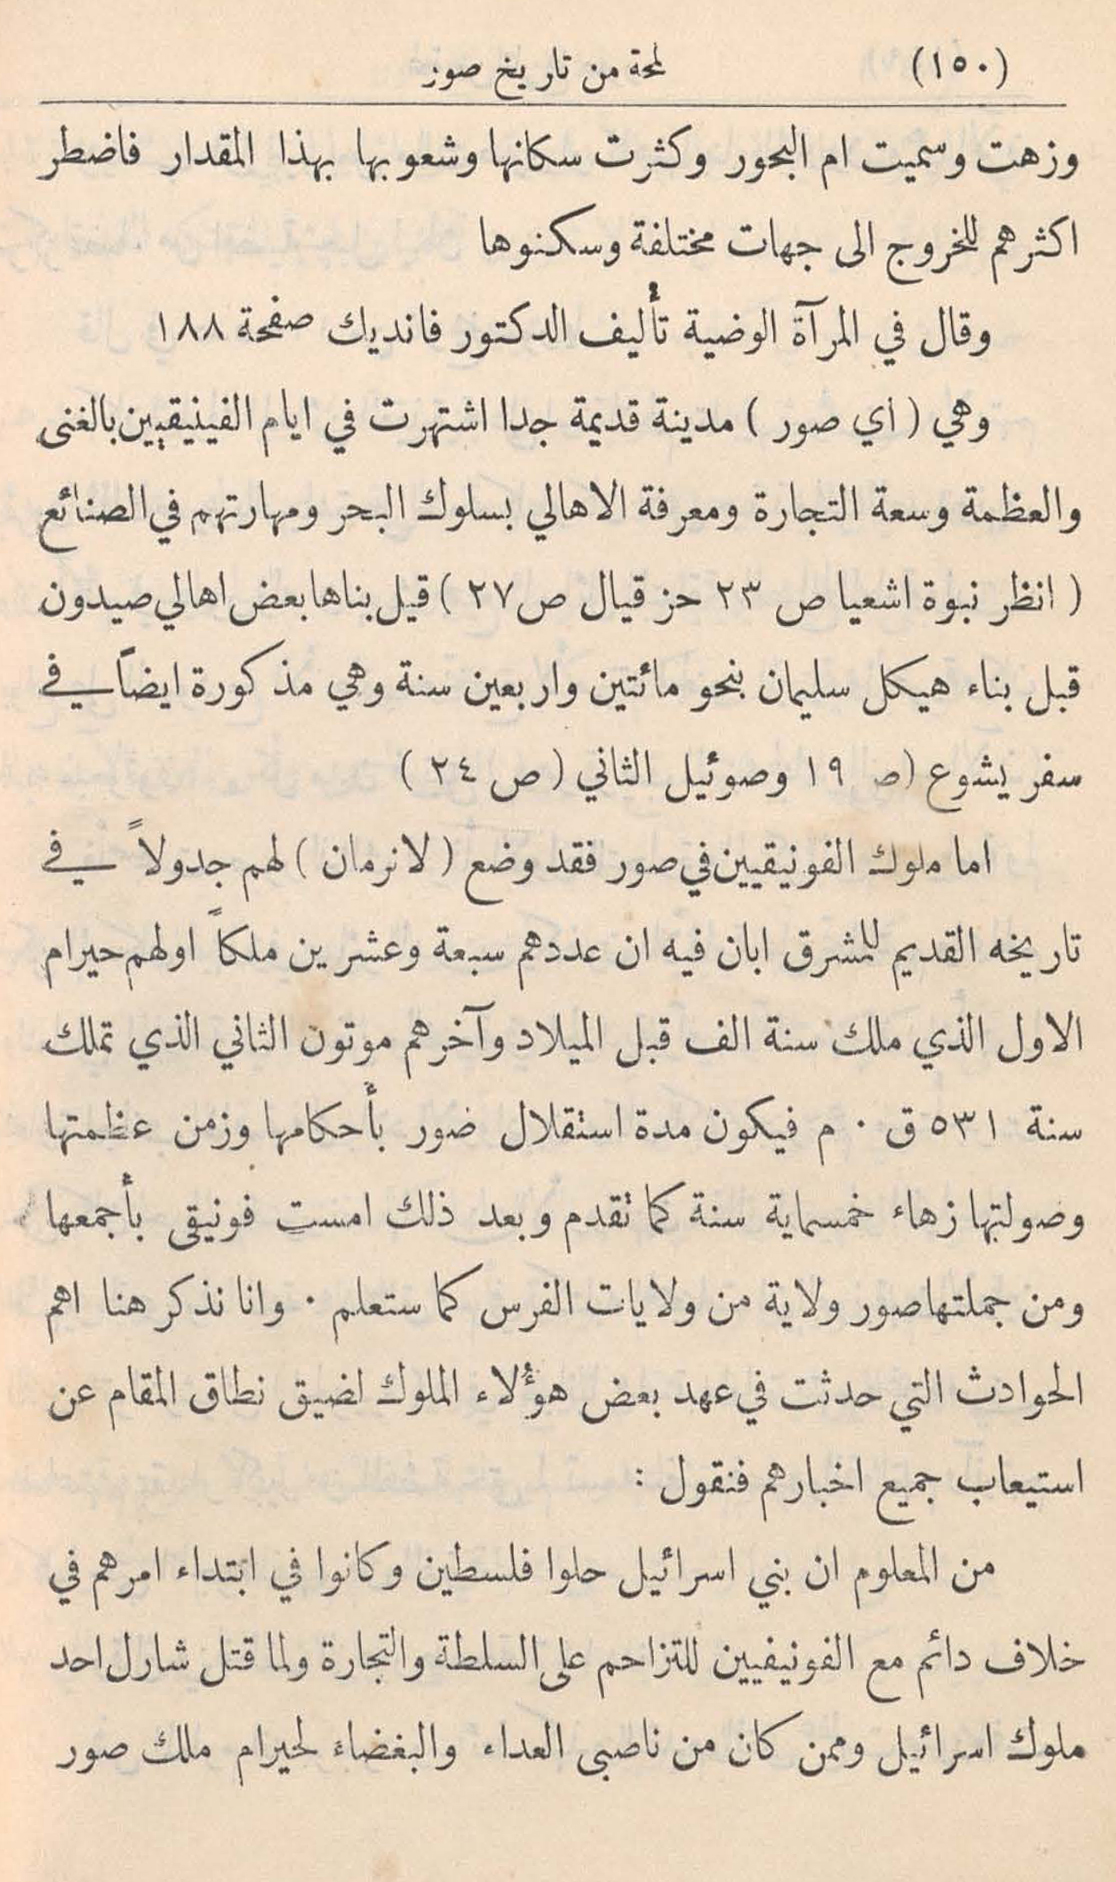 (١٥٠) لمحة من تاريخ صور
وزهت وسميت ام البحور وكثرت سكانها وشعوبها بهذا المقدار فاضطر
اكثرهم للخروج الى جهات مختلفة وسكنوها
وقال في المرآة الوضية تأليف الدكتور فانديك صفحة ١٨٨
وهي ( أي صور ) مدينة قديمة جدا اشتهرت في ايام الفينيقيين بالغنى
والعظمة وسعة التجارة ومعرفة الاهالي بسلوك البحر ومهارتهم في الصنائع
( انظر نبوة اشعيا ص ٢٣ حزقيال ص ٢٧ ) قيل بناها بعض اهالي صيدون
قبل بناء هيكل سليمان بنحو مائتين واربعين سنة وهي مذكورة ايضاً في
سفر يشوع (ص ١٩ وصوئيل الثاني ( ص ٢٤ )
اما ملوك الفونيقيين في صور فقد وضع ( لانرمان ) لهم جدولاً في
تاريخه القديم للمشرق ابان فيه ان عددهم سبعة وعشرين ملكاً اولهم حيرام
الاول الذي ملك سنة الف قبل الميلاد وآخرهم موتون الثاني الذي تملك
سنة ٥٣١ ق ٠ م فيكون مدة استقلال ضور بأحكامها وزمن عظمتها
وصولتها زهاء خمسماية سنة كما تقدم وبعد ذلك امست فونيقى بأجمعها
ومن جملتها صور ولاية من ولايات الفرس كما ستعلم ٠ وانا نذكر هنا اهم
الحوادث التي حدثت في عهد بعض هوءُلاء الملوك لضيق نطاق المقام عن
استيعاب جميع اخبارهم فنقول :
من المعلوم ان بني اسرائيل حلوا فلسطين وكانوا في ابتداء امرهم في
خلاف دائم مع الفونيفيين للتزاحم على السلطة والتجارة ولما قتل شارل احد
ملوك اسرائيل وممن كان من ناصبى العداء والبغضاء لحيرام ملك صور